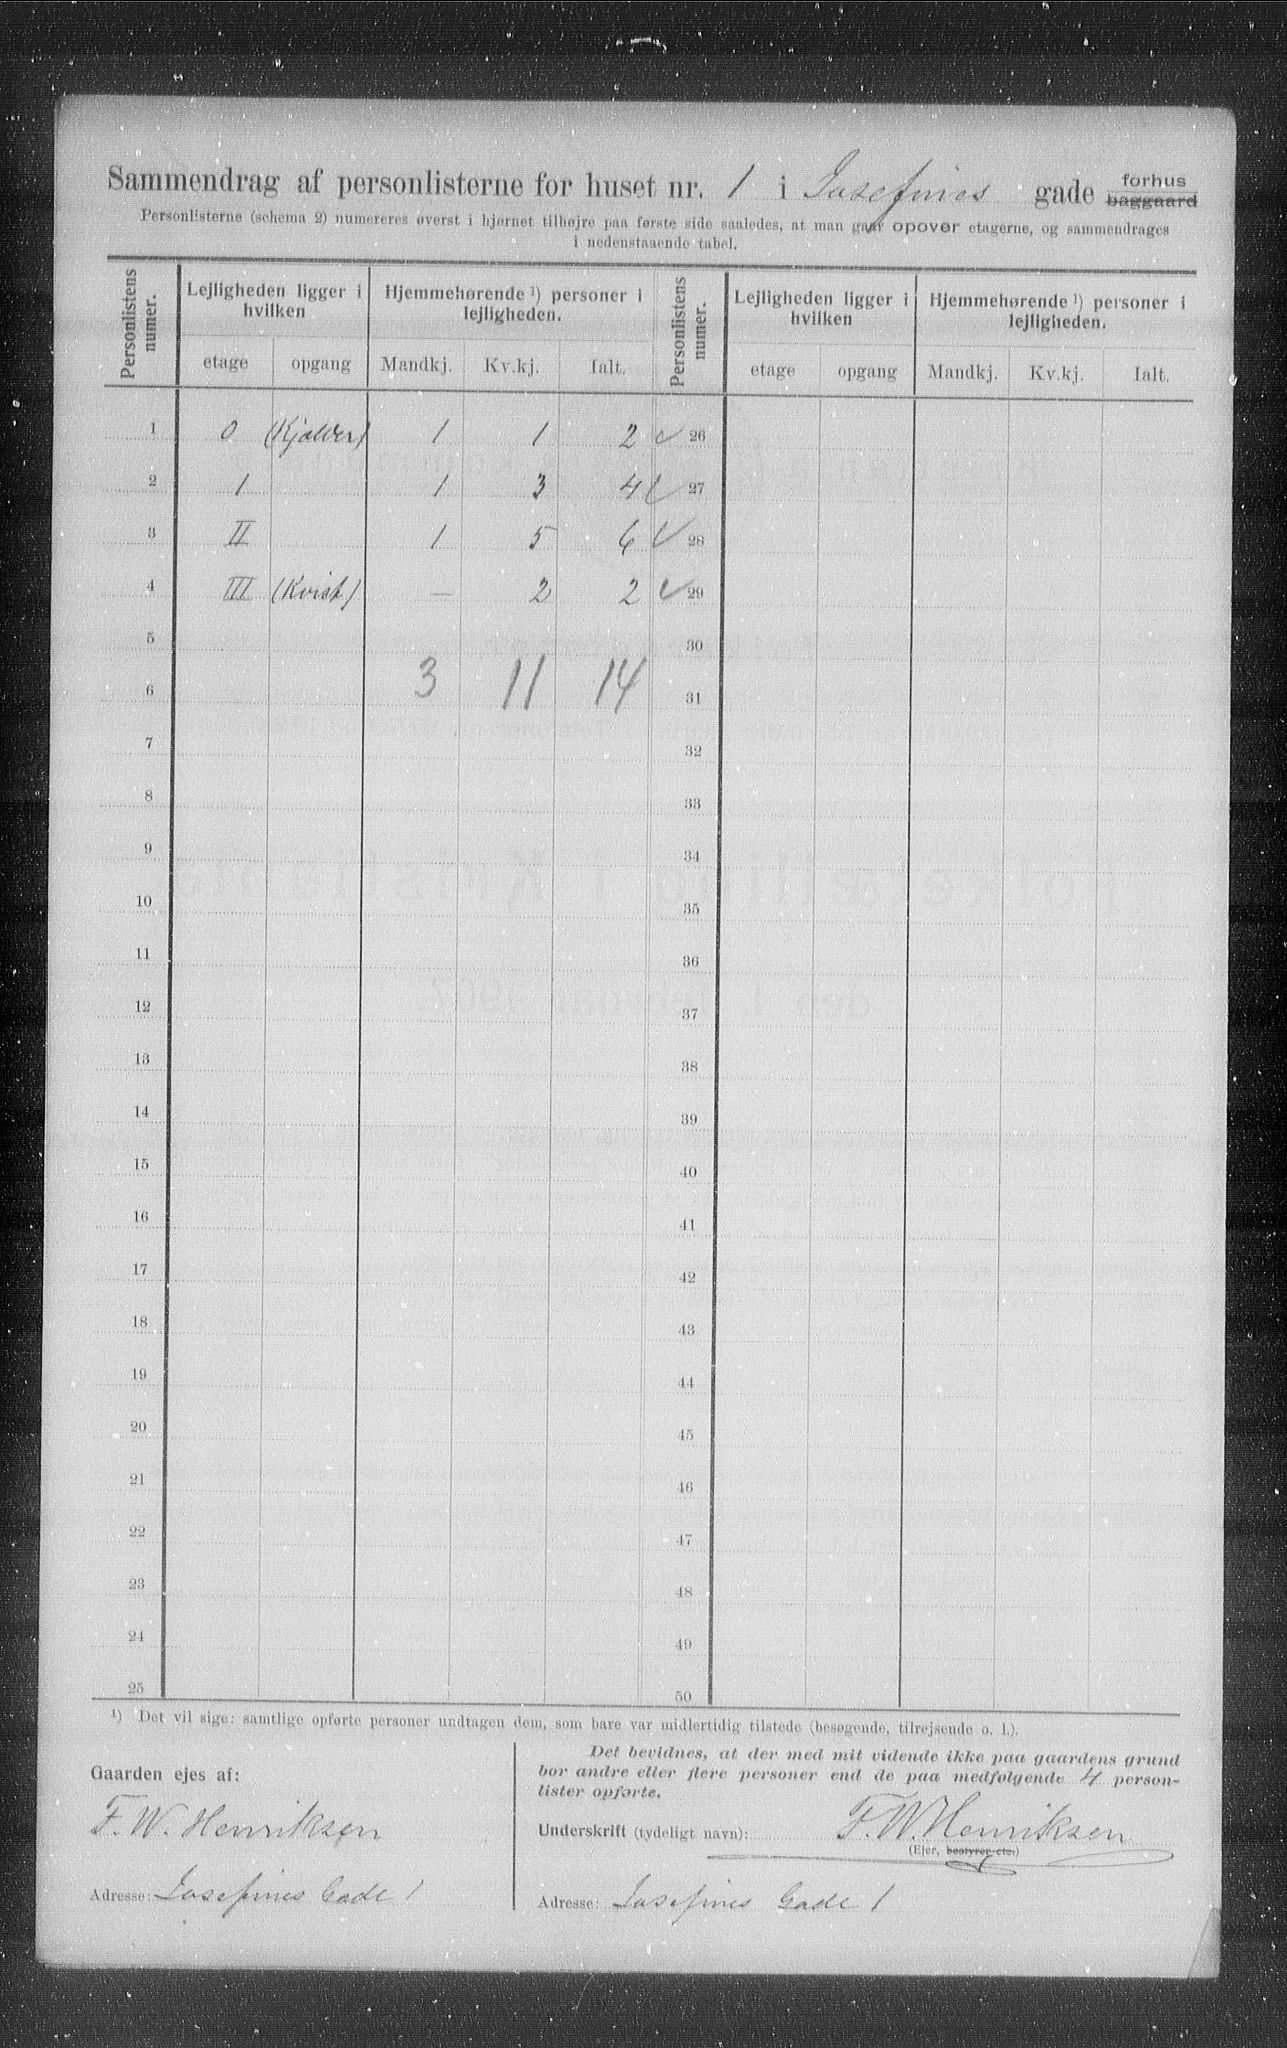 Sammendrag af personlisterne for huset nr. 1 i Josefines gade forhus baggaard
Personlisterne (schema 2) numereres øverst i hjørnet tilhøjre paa første side saaledes, at man gaar opover etagerne, og sammendrages
i nedenstaaende tabel.
Personlistens numer. Lejligheden ligger i hvilken Hjemmehørende ¹) personer i lejligheden. Personlistens numer. Lejligheden ligger i hvilken Hjemmehørende ¹) personer i lejligheden.
etage opgang Mandkj. Kv.kj. Ialt. etage opgang Mandkj. Kv.kj. Ialt.
1 0 (Kjælder) 1 1 2 ✓ 26
2 1 1 3 4 ✓ 27
3 II 1 5 6 ✓ 28
4 III (Kvist) — 2 2 ✓ 29
5 30
6 3 11 14 31
7 32
8 33
9 34
10 35
11 36
12 37
13 38
14 39
15 40
16 41
17 42
18 43
19 44
20 45
21 46
22 47
23 48
24 49
25 50
¹) Det vil sige: samtlige opførte personer undtagen dem, som bare var midlertidig tilstede (besøgende, tilrejsende o. l.).
Gaarden ejes af:
F. W. Henriksen
Adresse: Josefines Gade 1
Det bevidnes, at der med mit vidende ikke paa gaardens grund
bor andre eller flere personer end de paa medfølgende 4 person-
lister opførte.
Underskrift (tydeligt navn): F. W. Henriksen
(Ejer, bestyrer etc.)
Adresse: Josefines Gade 1